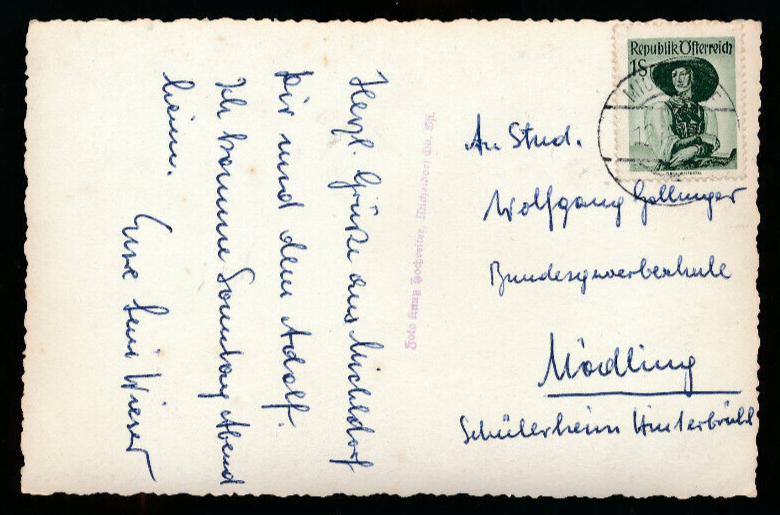 Herzl. Grüße aus Micheldorf
Dir und dem Adolf.
Ich komme Sonntag Abend
heim.
Euer Wieser
Foto Franz Hochreiter, Micheldorf Ob. Öst.
Republik Österreich
1S
An Stud.
Wolfgang Gollinger
Bundesgewerbeschule
Mödling
Schülerheim Hinterbrühl